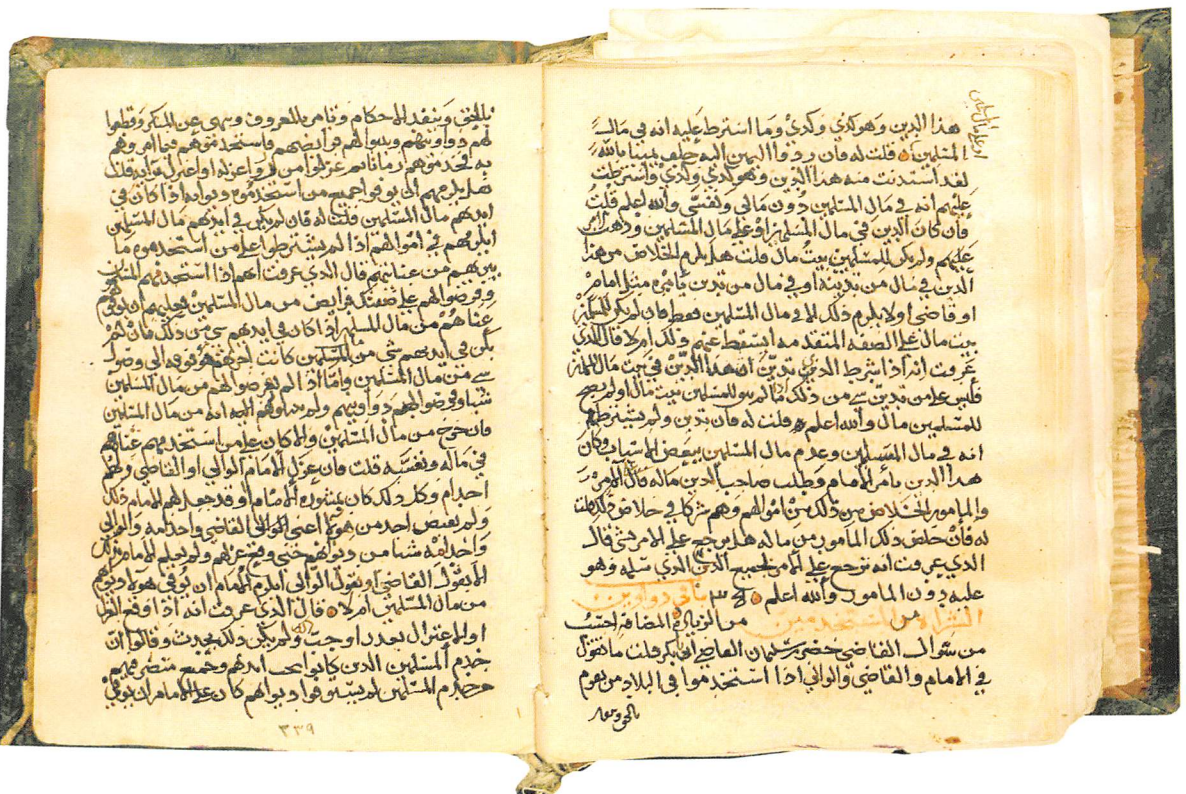 هذا الدين وهو كذي وكذي وما اشترط عليه انه في مال
المسلمين قلت له فان ردوا اليمين اليه حلف يمينا بالله
لقد استدنت منه هذا الدين وهو كذي وكذي واشترطت
عليهم انه في مال المسلمين دون مالي ونفسي والله اعلم قلت
فان كان الدين في مال المسلمين او على مال المسلمين
عليهم ولم يكن للمسلمين بيت مال قلت هل يلزم الخلاص من هذا
الدين في مال من تدينه او في مال من تدين بامره مثل امام
او قاضي او لا يلزم ذلك الا في مال المسلمين فقط فان لم يكن للمسلمين
بيت مال على الصفة المتقدمة ايسقط عنهم ذلك ام لا قال الذي
عرفت انه اذا شرط الذي تدين ان هذا الدين في بيت مال المسلمين
فليس على من تدين شي من ذلك للمسلمين بيت مال او لم يصح
للمسلمين مال والله اعلم قلت له فان تدين ولم يشترط
انه في مال المسلمين وعدم مال المسلمين ببعض الاسباب وكان
هذا الدين بامر الامام وطلب صاحب الدين ماله قال الامر
والمامور الخلاص من ذلك من اموالهم وهم شركا في خلاص ذلك قلت
له فان خلص ذلك المامور من ماله هل يرجع على الامر بشي قال
الذي عرفت انه يرجع على الامر بجميع الدين الذي سلمه وهو
عليه دون المامور والله اعلم في دواوين
الشراة المستخدمين من الزيادة المضافة
من سوال القاضي خضر بن سليمان القاضي ابي بكر قلت ما تقول
في الامام والقاضي والوالي اذا استخدموا في البلاد من يقوم
بالحق
بالحق وينفذ الاحكام ويامر بالمعروف وينهى عن المنكر وقطعوا
لهم دواوينهم وبينوا لهم فرايضهم واستخدموهم فيما امروهم
به فخدموهم زمانا ثم عزلوا من او اعزله او اعتزل برايه قلت
هل يلزمهم ان يوفوا جميع من استخدموه ديوانه اذا كان في
ايديهم مال المسلمين قلت له فان لم يكن في ايديهم مال المسلمين
ايلزمهم في اموالهم اذا لم يشترطوا على من استخدموه ما
من عنائهم قال الذي عرفت انهم اذا استخدمهم المسلمين
وفرضوا لهم على فرايض من مال المسلمين فعليهم ان يوفوهم
عناهم من مال المسلمين اذا كان في ايديهم شي من ذلك فان لم
يكن في ايديهم شي من المسلمين كانت اجرتهم موقوفه الى وصول
شي من مال المسلمين واما اذا لم يفرضوا لهم من مال المسلمين
شيا وفرضوا لهم دواوينهم ولم انه من مال المسلمين
فان خرج من مال المسلمين والا كان على من استخدمهم عناهم
في ماله ونفسه قلت فان عزل الامام الوالي او القاضي
وكل ذلك كان بمشورة الامام او قد جعل لهم الامام ذلك
ولم يقبض احد من هولا اعني الوالي القاضي والوالي
شيا من ديوانهم حتى وقع عزلهم ولم يعلم الامام بذلك
الا بقول القاضي او بقول الوالي ايلزم الامام ان يوفي هولا ديوانهم
من مال المسلمين ام لا قال الذي عرفت انه اذا وقع
او الاعتزال بعذر ولم يكن ذلك بحدث وقالوا ان
خدام المسلمين الذين كانوا تحت ايديهم
من خدام المسلمين لم يستوفوا ديوانهم كان على الامام ان يوفي
٣٣٩